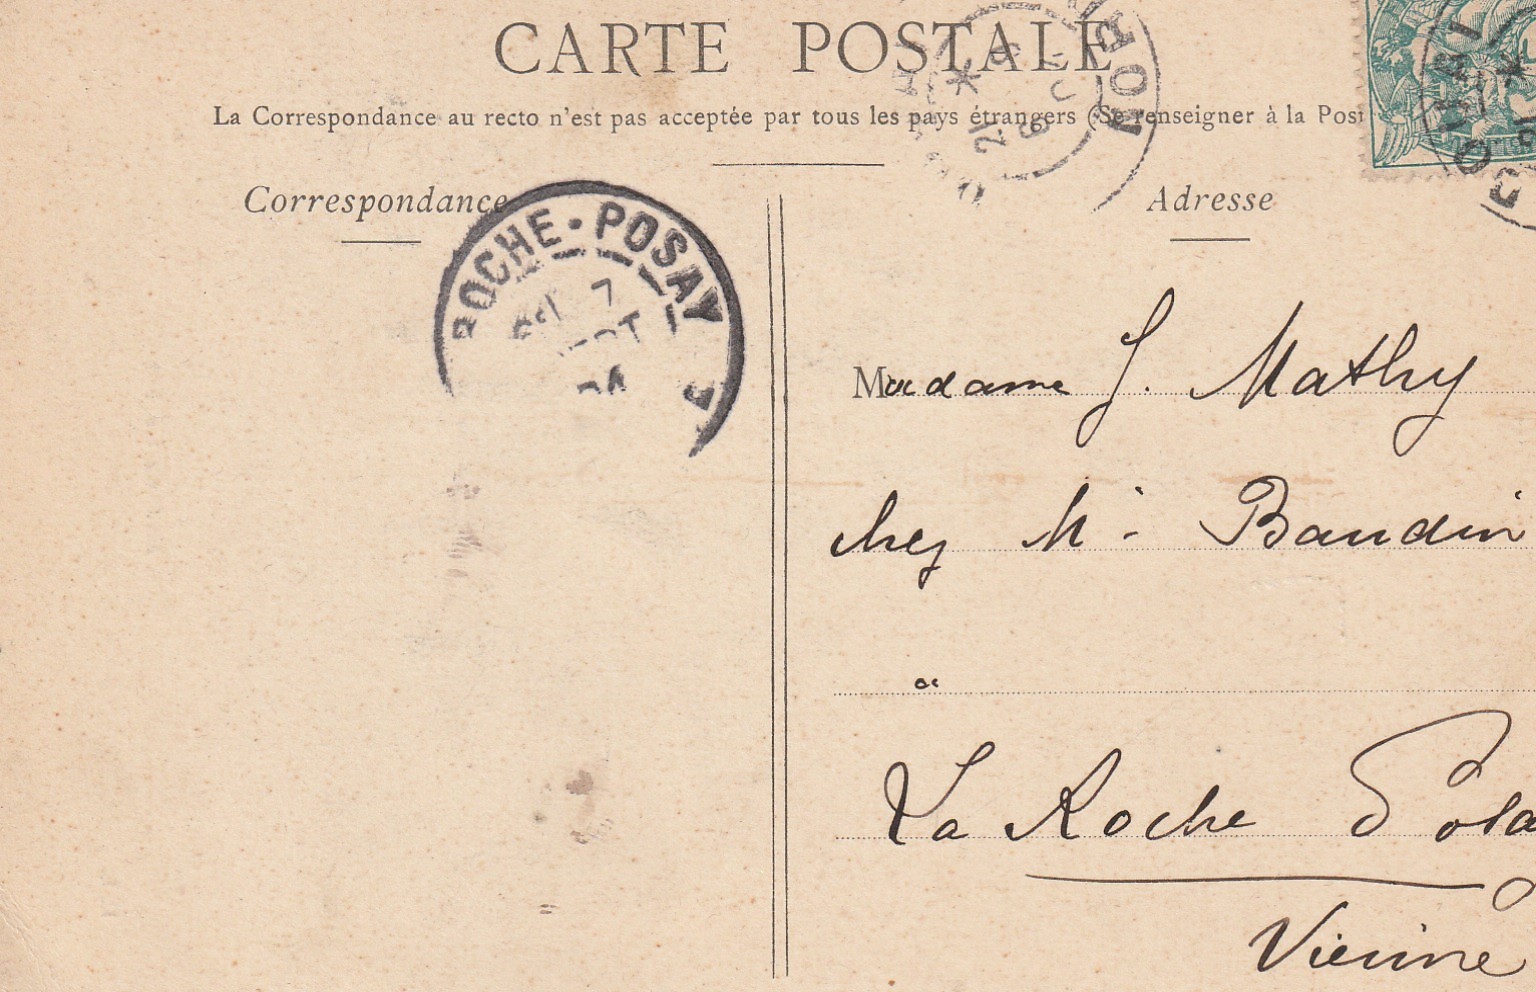 CARTE POSTALE
La Correspondance au recto n'est pas acceptée par tous les pays étrangers (Se renseigner à la Post
Correspondance
Adresse
ROCHE-POSAY
7
Madame J. Mathy
chez Mr Baudin
a
La Roche Posa
Vienne